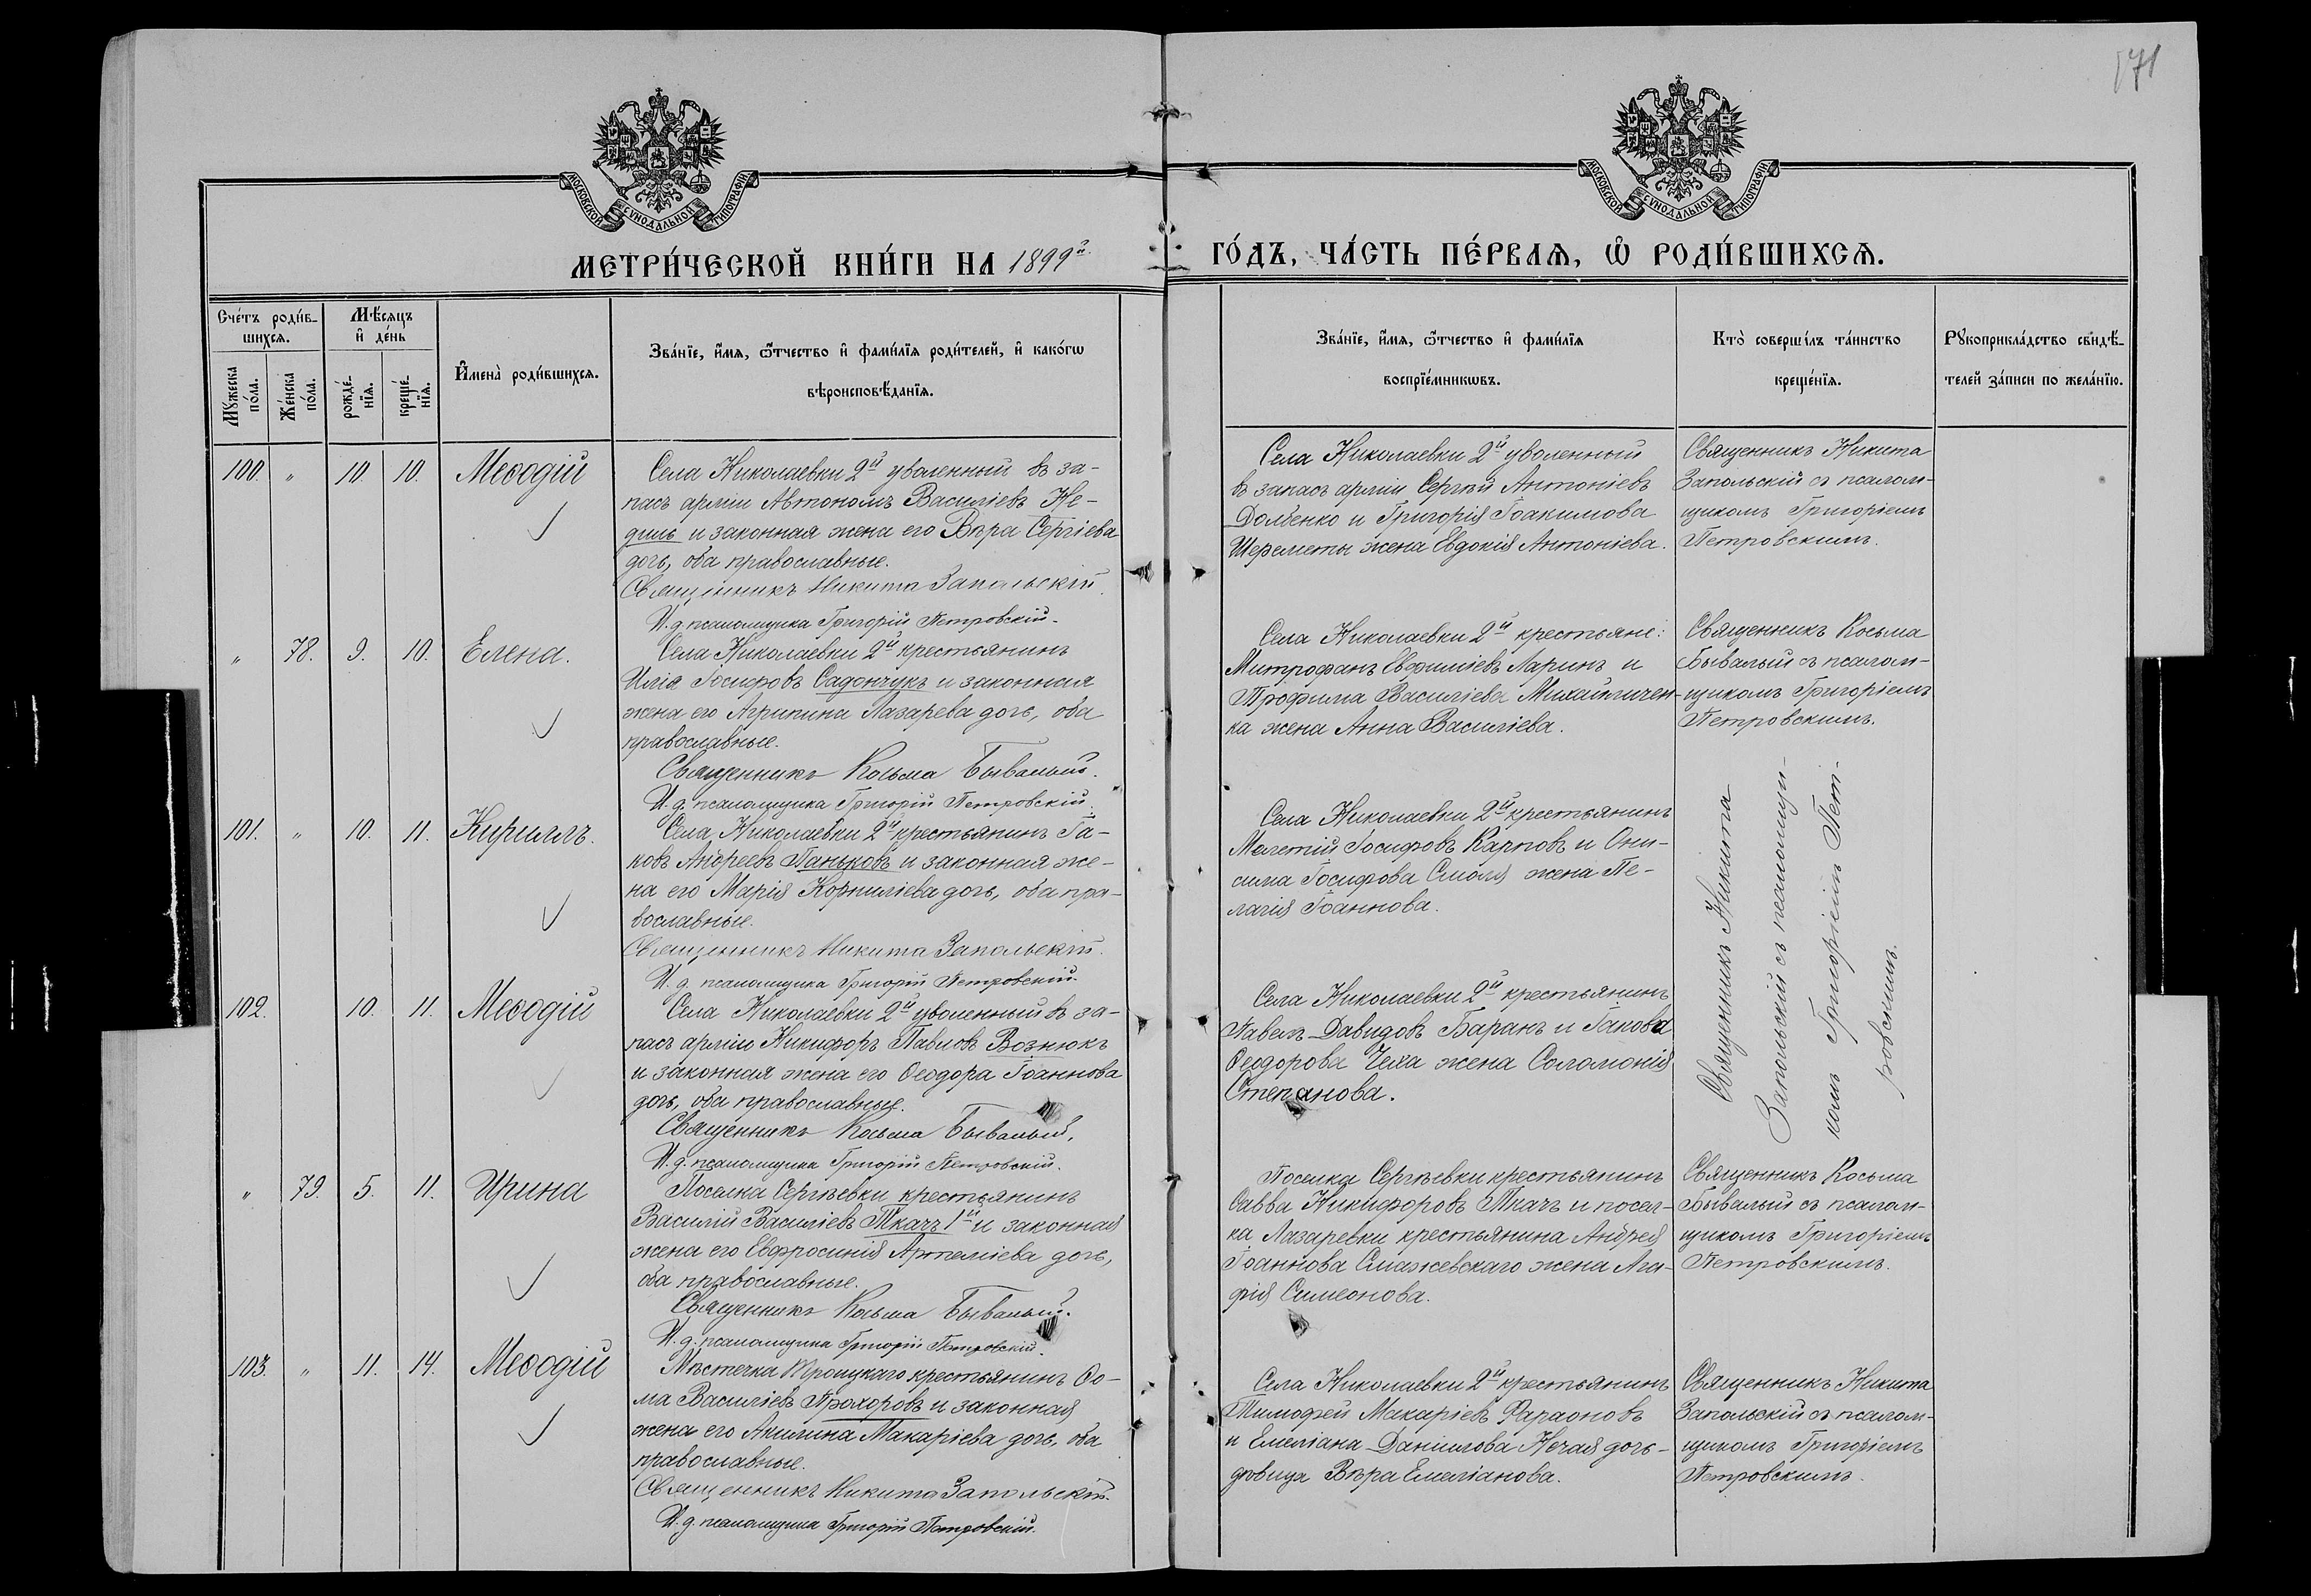 171
МОСКОВСКОЙ СѴНОДАЛЬНОЙ ТИПОГРАФІИ
МОСКОВСКОЙ СѴНОДАЛЬНОЙ ТИПОГРАФІИ
МЕТРИ́ЧЕСКОЙ КНИ́ГИ НА 1899й
ГО́ДЪ, ЧА́СТЬ ПЕ́РВАѦ, Ѡ҆ РОДИ́ВШИХСѦ.
Сче́тъ роди́в-
шихсѧ.
Мѣ́сѧцъ
и҆ де́нь
Мꙋ́жеска по́ла.
Же́нска по́ла.
рожде́-
нїѧ.
креще́-
нїѧ.
И҆мена̀ роди́вшихсѧ.
Зва́нїе, и҆́мѧ, ѻ҆́тчество и҆ фами́лїѧ роди́телей, и҆ како́гѡ
вѣроисповѣ́данїѧ.
Зва́нїе, и҆́мѧ, ѻ҆́тчество и҆ фами́лїѧ
воспрїе́мникѡвъ.
Кто̀ соверши́лъ та́инство
креще́нїѧ.
Рꙋкоприкла́дство свидѣ́-
телей за́писи по жела́нїю.
100. " 10. 10. Меѳодій
Села Николаевки 2й уволенный въ за-
пасъ арміи Автономъ Василіевъ Не-
диль и законная жена его Вѣра Сергіева
дочь, оба православные.
Священникъ Никита Запольскій.
И. д. псаломщика Григорій Петровскій.
Села Николаевки 2й уволенный
въ запасъ арміи Сергѣй Антоніевъ
Долбенко и Григорія Іоакимова
Шереметы жена Евдокія Антоніева.
Священникъ Никита
Запольскій съ псалом-
щикомъ Григоріемъ
Петровскимъ.
" 78. 9. 10. Елена.
Села Николаевки 2й крестьянинъ
Илія Іосифовъ Садончукъ и законная
жена его Агрипина Лазарева дочь, оба
православные.
Священникъ Косьма Бывалый.
И. д. псаломщика Григорій Петровскій.
Села Николаевки 2й крестьяне:
Митрофанъ Евфиміевъ Ларинъ и
Трофима Василіева Михайличен-
ка жена Анна Василіева.
Священникъ Косьма
Бывалый съ псалом-
щикомъ Григоріемъ
Петровскимъ.
101. " 10. 11. Кириллъ.
Села Николаевки 2й крестьянинъ Іа-
ковъ Андреевъ Паньковъ и законная же-
на его Марія Корниліева дочь, оба пра-
вославные.
Священникъ Никита Запольскій.
И. д. псаломщика Григорій Петровскій.
Села Николаевки 2й крестьянинъ
Мелетій Іосифовъ Карповъ и Они-
сима Іосифова Смоля жена Пе-
лагія Іоаннова.
Священникъ Никита
Запольскій съ псаломщи-
комъ Григоріемъ Пет-
ровскимъ.
102. 10. 11. Меѳодій
Села Николаевки 2й уволенный въ за-
пасъ арміи Никифоръ Павловъ Вознюкъ
и законная жена его Ѳеодора Іоаннова
дочь, оба православные.
Священникъ Косьма Бывалый.
И. д. псаломщика Григорій Петровскій.
Села Николаевки 2й крестьянинъ
Павелъ Давидовъ Баранъ и Іакова
Ѳеодорова Чеха жена Соломонія
Степанова.
" 79. 5. 11. Ирина
Поселка Сергѣевки крестьянинъ
Василій Василіевъ Ткачъ 1й и законная
жена его Евфросинія Артеміева дочь,
оба православные.
Священникъ Косьма Бывалый.
И. д. псаломщика Григорій Петровскій.
Поселка Сергѣевки крестьянинъ
Савва Никифоровъ Ткачъ и посел-
ка Лазаревки крестьянина Андрея
Іоаннова Смажевскаго жена Ага-
фія Симеонова.
Священникъ Косьма
Бывалый съ псалом-
щикомъ Григоріемъ
Петровскимъ.
103. " 11. 14. Меѳодій
Мѣстечка Троицкаго крестьянинъ Ѳо-
ма Василіевъ Прохоровъ и законная
жена его Акилина Макаріева дочь, оба
православные.
Священникъ Никита Запольскій.
И. д. псаломщика Григорій Петровскій.
Села Николаевки 2й крестьянинъ
Тимофей Макаріевъ Фараоновъ
и Емеліана Даніилова Нечая дочь-
дѣвица Вѣра Емеліанова.
Священникъ Никита
Запольскій съ псалом-
щикомъ Григоріемъ
Петровскимъ.